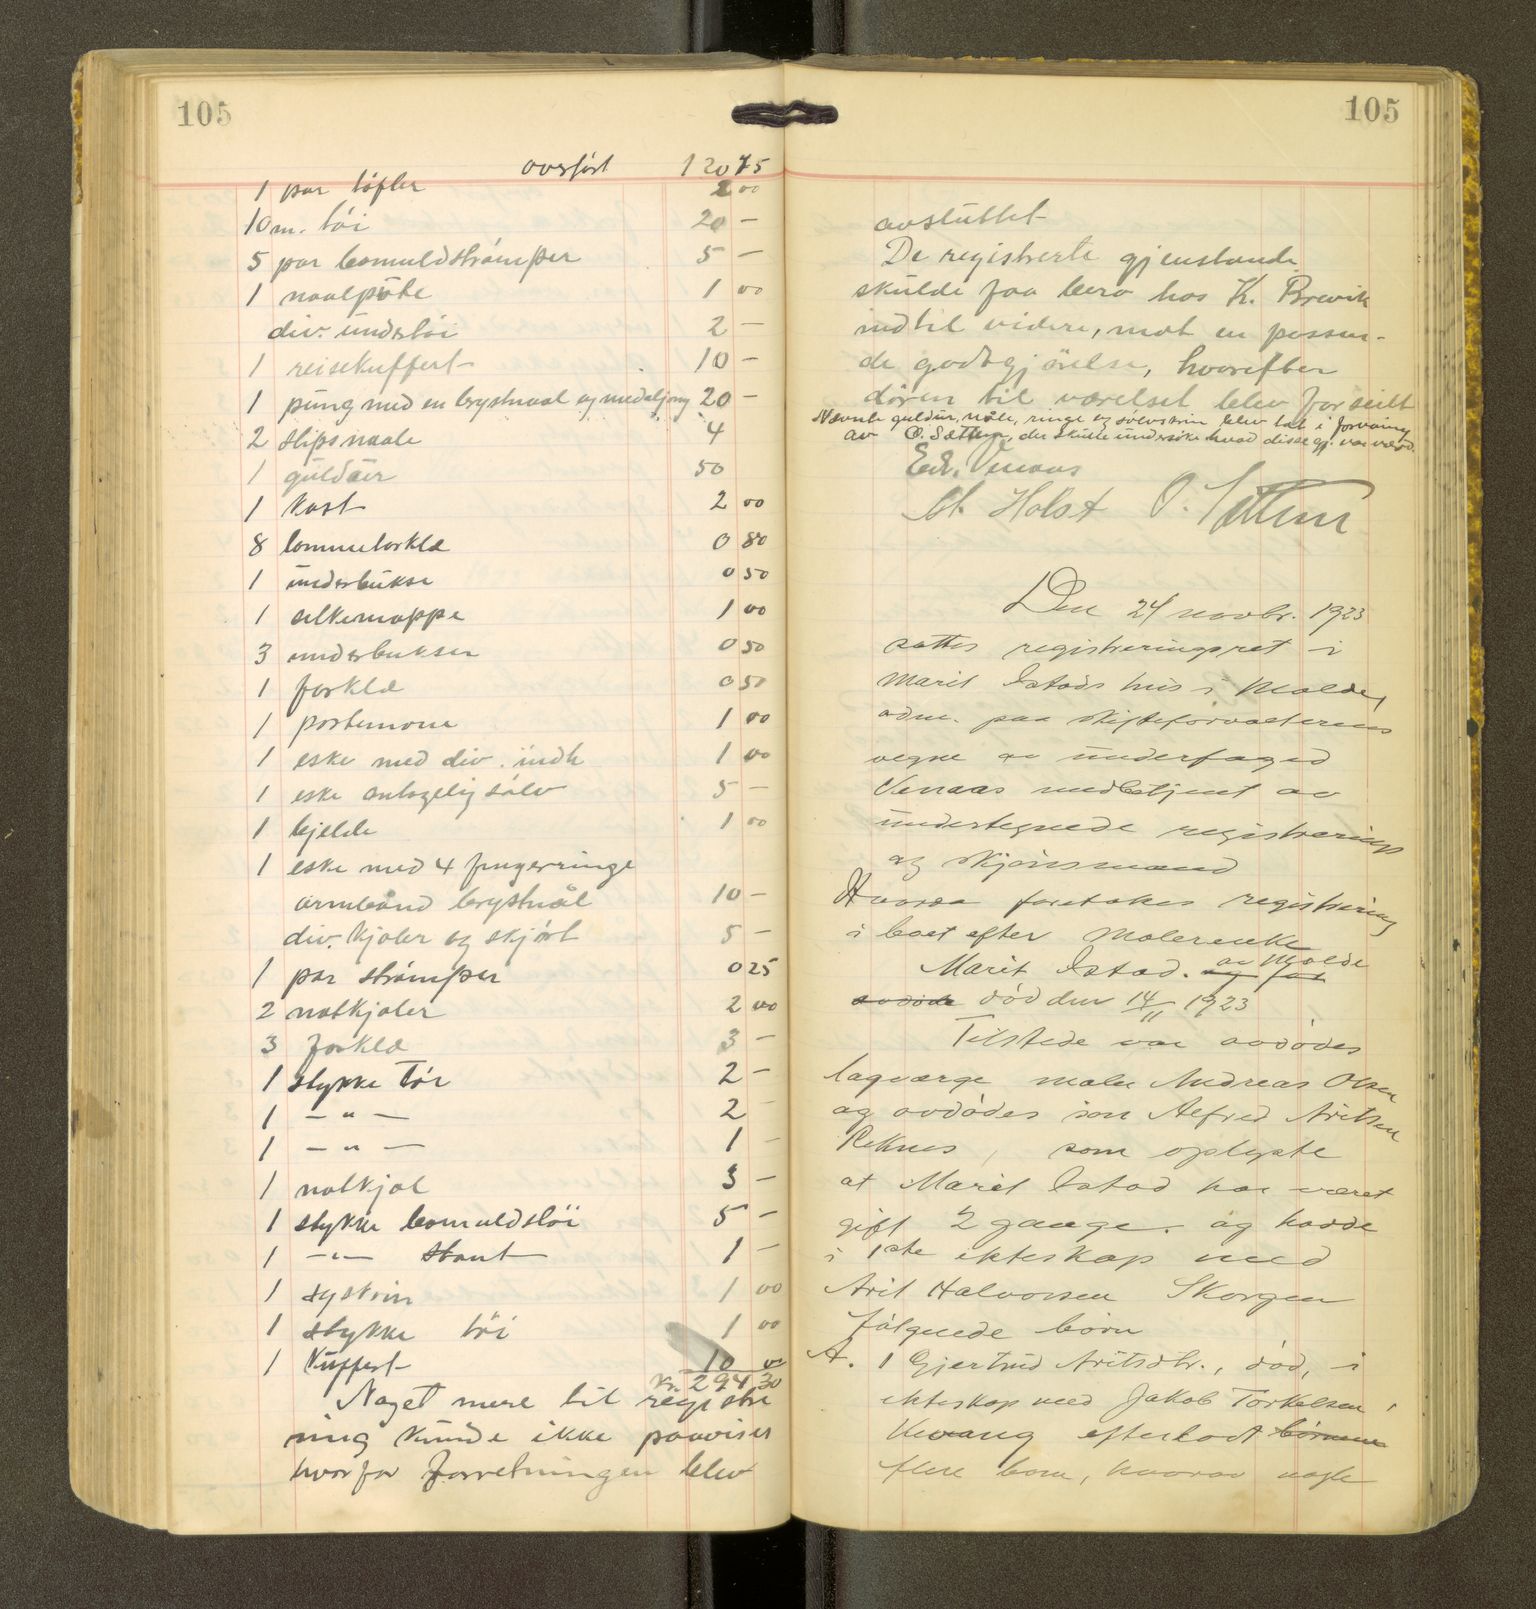 105
overført 120 75
1 par tøfler 2 00
10 m. tøi 20 -
5 par bomuldstrømper 5 -
1 naalpute 1 00
div. undertøi 2 -
1 reisekuffert 10 -
1 pung med en brystnaal og medaljong 20 -
2 slipsnaale 4
1 guldur 50
1 kost 2 00
8 lommetørklæ 0 80
1 underbukse 0 50
1 silkemappe 1 00
3 underbukser 0 50
1 forklæ 0 50
1 portemone 1 00
1 eske med div. indh 1 00
1 eske antagelig sølv 5 -
1 bjelde 1 00
1 eske med 4 fingerringe
armbånd brystnål 10 -
div. kjoler og skjørt 5 -
1 par strømper 0 25
2 natkjoler 2 00
3 forklæ 3 -
1 stykke tøi 2 -
1 - " - 2 -
1 - " - 1 -
1 natkjol 3 -
1 stykke bomuldstøi 5 -
1 - " - stout 1 -
1 syskrin 1 00
1 stykke tøi 1 00
1 kuffert 10 00
Kr. 294 30
Noget mere til registre
ring kunde ikke paavises
hvorfor forretningen blev
105
avsluttet
De registrerte gjenstande
skulde faa bero hos K. Brevik
indtil videre, mot en passen-
de godtgjørelse, hvorefter
døren til værelset blev forseilt
Nævnte guldur, nåle, ringe og sølvskrin blev tat i forvaring
av O. Sættem, der skulle undersøke hvad disse gj. var værd.
Edv. Venaas
M. Holst O. Sættem
Den 24 novbr. 1923
sattes registreringsret i
Marit Istads hus i Molde,
adm. paa skifteforvalterens
vegne av underfoged
Venaas medbetjent av
undertegnede registrerings
og skjønsmænd
Hvorda foretakes registrering
i boet efter Malerenke
Marit Istad. av Molde
død den 14/11 1923
Tilstede var avdødes
lagværge maler Andreas Olsen
og avdødes søn Alfred Aritsen
Reknes, som oplyste
at Marit Istad har været
gift 2 gange. og hadde
i 1ste ekteskap med
Arit Halvorsen Skorgen
følgende børn
A. 1 Gjertrud Aritsdtr., død, i
ekteskap med Jakob Torkelsen,
efterlodt børnene
flere barn, hvorav nogle